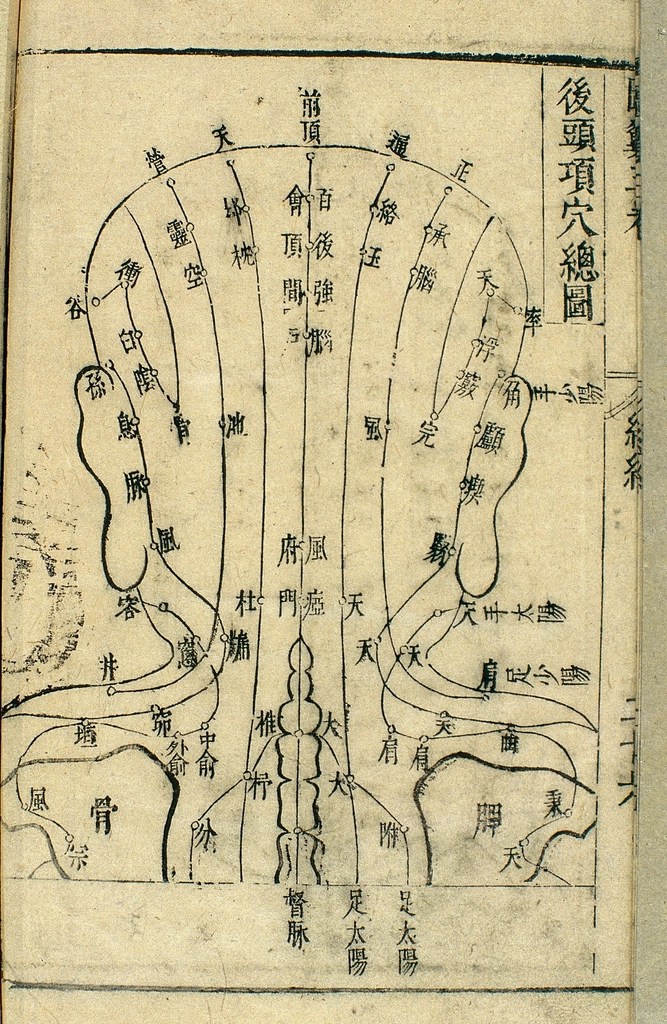 後頭項穴總圖
前頂
天
通
營
正
百會
後頂
強間
腦
靈
空
卻
枕
絡
玉
承
腦
衝
谷
天
率
白
陰
浮
竅
角
手少陽
孫
息
脈
風
池
風
完
顱
瘈
府
風
門
瘂
容
杜
天
天
手太陽
窓
牖
天
天
井
肩
足少陽
椎
大
外俞
中俞
肩
肩
天
風
骨
杼
大
胛
秉
宗
分
附
天
督脉
足太陽
足太陽